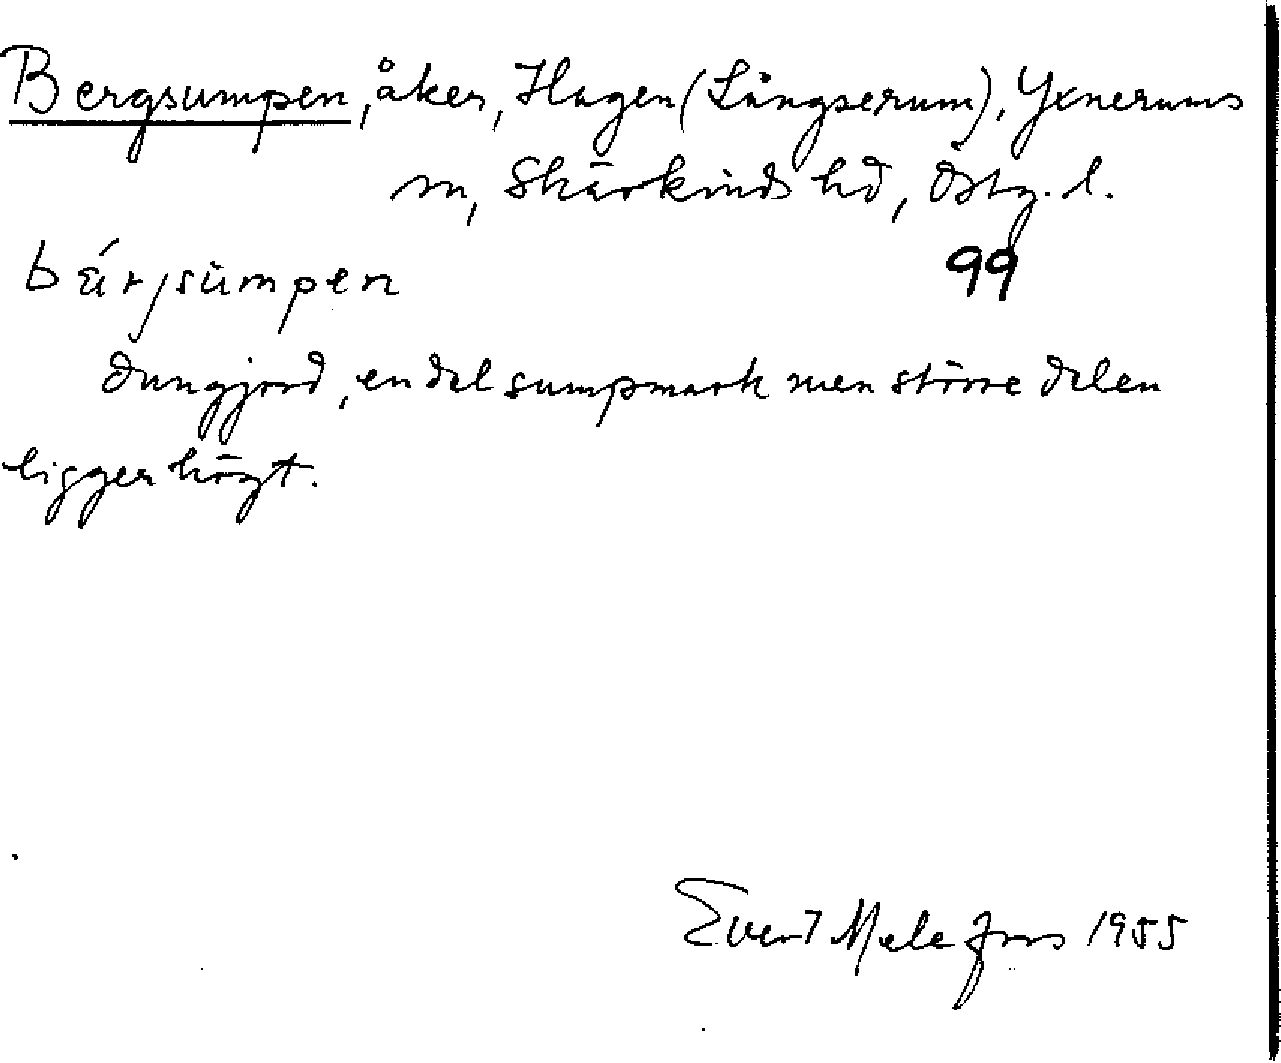 Bergsumpen, åker, Hagen (Långserum), Yxnerums
sn, Skärkinds hd, Östg. l.
bä́rjsùmpen
99
dungjord, en del sumpmark men större delen
ligger högt.
Evert Melefors 1955